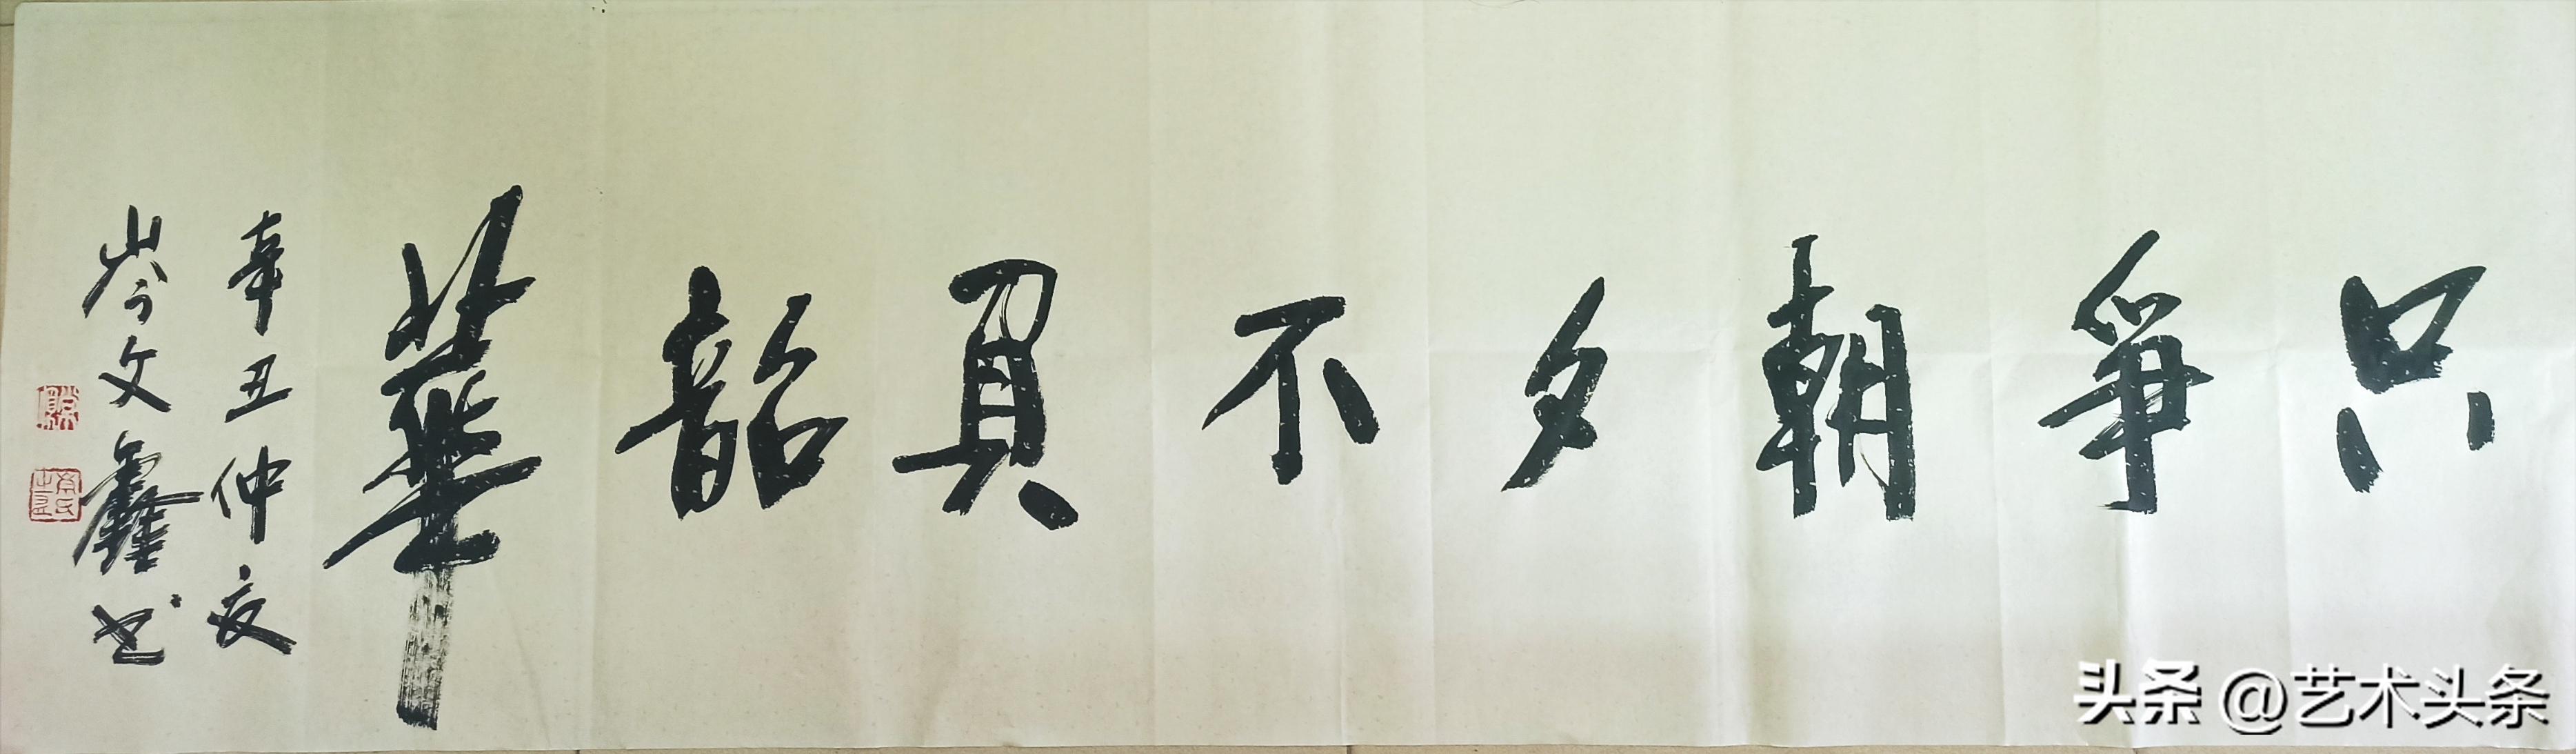 只爭朝夕不負韶華
辛丑仲夜
岑文鑫书
头条 @艺术头条